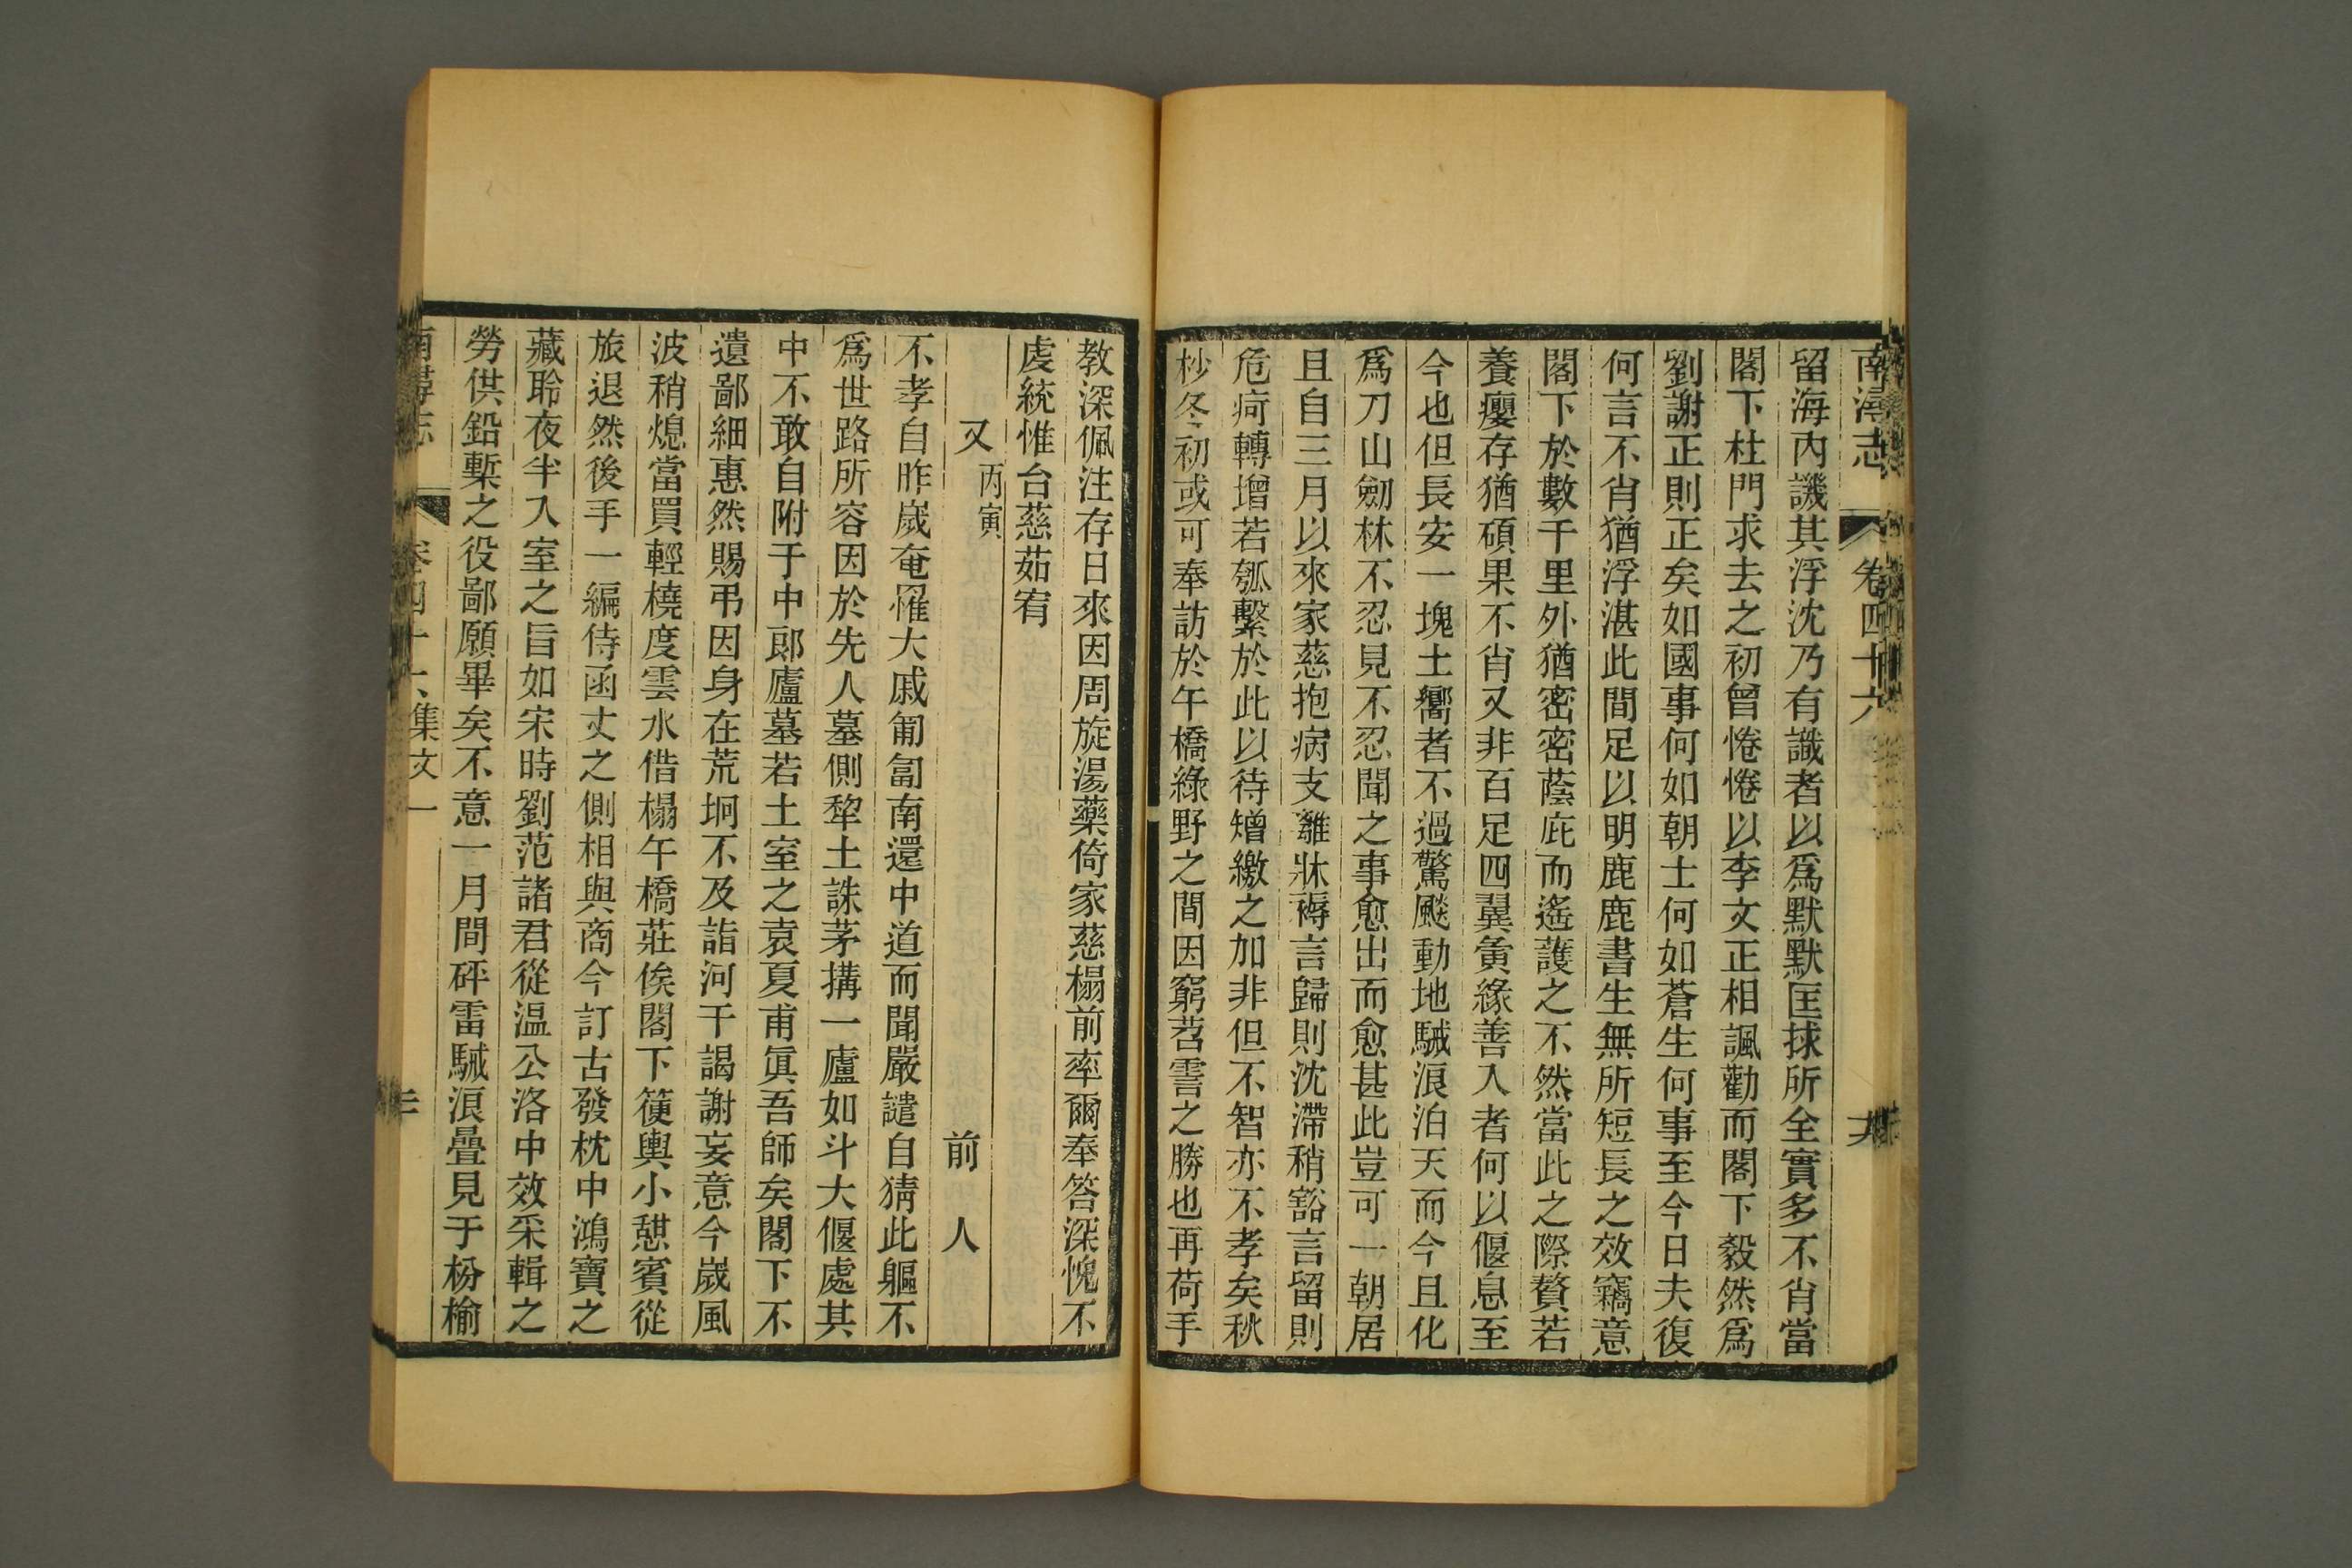 南潯志 卷四十六
留海內譏其浮沈乃有識者以爲默默匡捄所全實多不肖當
閣下杜門求去之初曾惓惓以李文正相諷勸而閣下毅然爲
劉謝正則正矣如國事何如朝士何如蒼生何事至今日夫復
何言不肖猶浮湛此間足以明鹿鹿書生無所短長之效竊意
閣下於數千里外猶密密蔭庇而遙護之不然當此之際贅若
養癭存猶碩果不肖又非百足四翼夤緣善入者何以偃息至
今也但長安一塊土嚮者不過驚颷動地駴浪泊天而今且化
爲刀山劒林不忍見不忍聞之事愈出而愈甚此豈可一朝居
且自三月以來家慈抱病支離牀褥言歸則沈滯稍豁言留則
危疴轉增若瓠繫於此以待矰繳之加非但不智亦不孝矣秋
杪冬初或可奉訪於午橋綠野之間因窮苕霅之勝也再荷手
教深佩注存日來因周旋湯藥倚家慈榻前率爾奉答深愧不
虔統惟台慈茹宥
又 丙寅 前人
不孝自昨歲奄罹大戚匍匐南還中道而聞嚴譴自猜此軀不
爲世路所容因於先人墓側犂土誅茅搆一廬如斗大偃處其
中不敢自附于中郎廬墓若土室之袁夏甫眞吾師矣閣下不
遺鄙細惠然賜弔因身在荒坰不及詣河干謁謝妄意今歲風
波稍熄當買輕橈度雲水借榻午橋莊俟閣下箯輿小憩賓從
旅退然後手一編侍函丈之側相與商今訂古發枕中鴻寶之
藏聆夜半入室之旨如宋時劉范諸君從温公洛中效采輯之
勞供鉛槧之役鄙願畢矣不意一月間砰雷駴浪疊見于枌榆
南潯志 卷四十六 集文一 二十